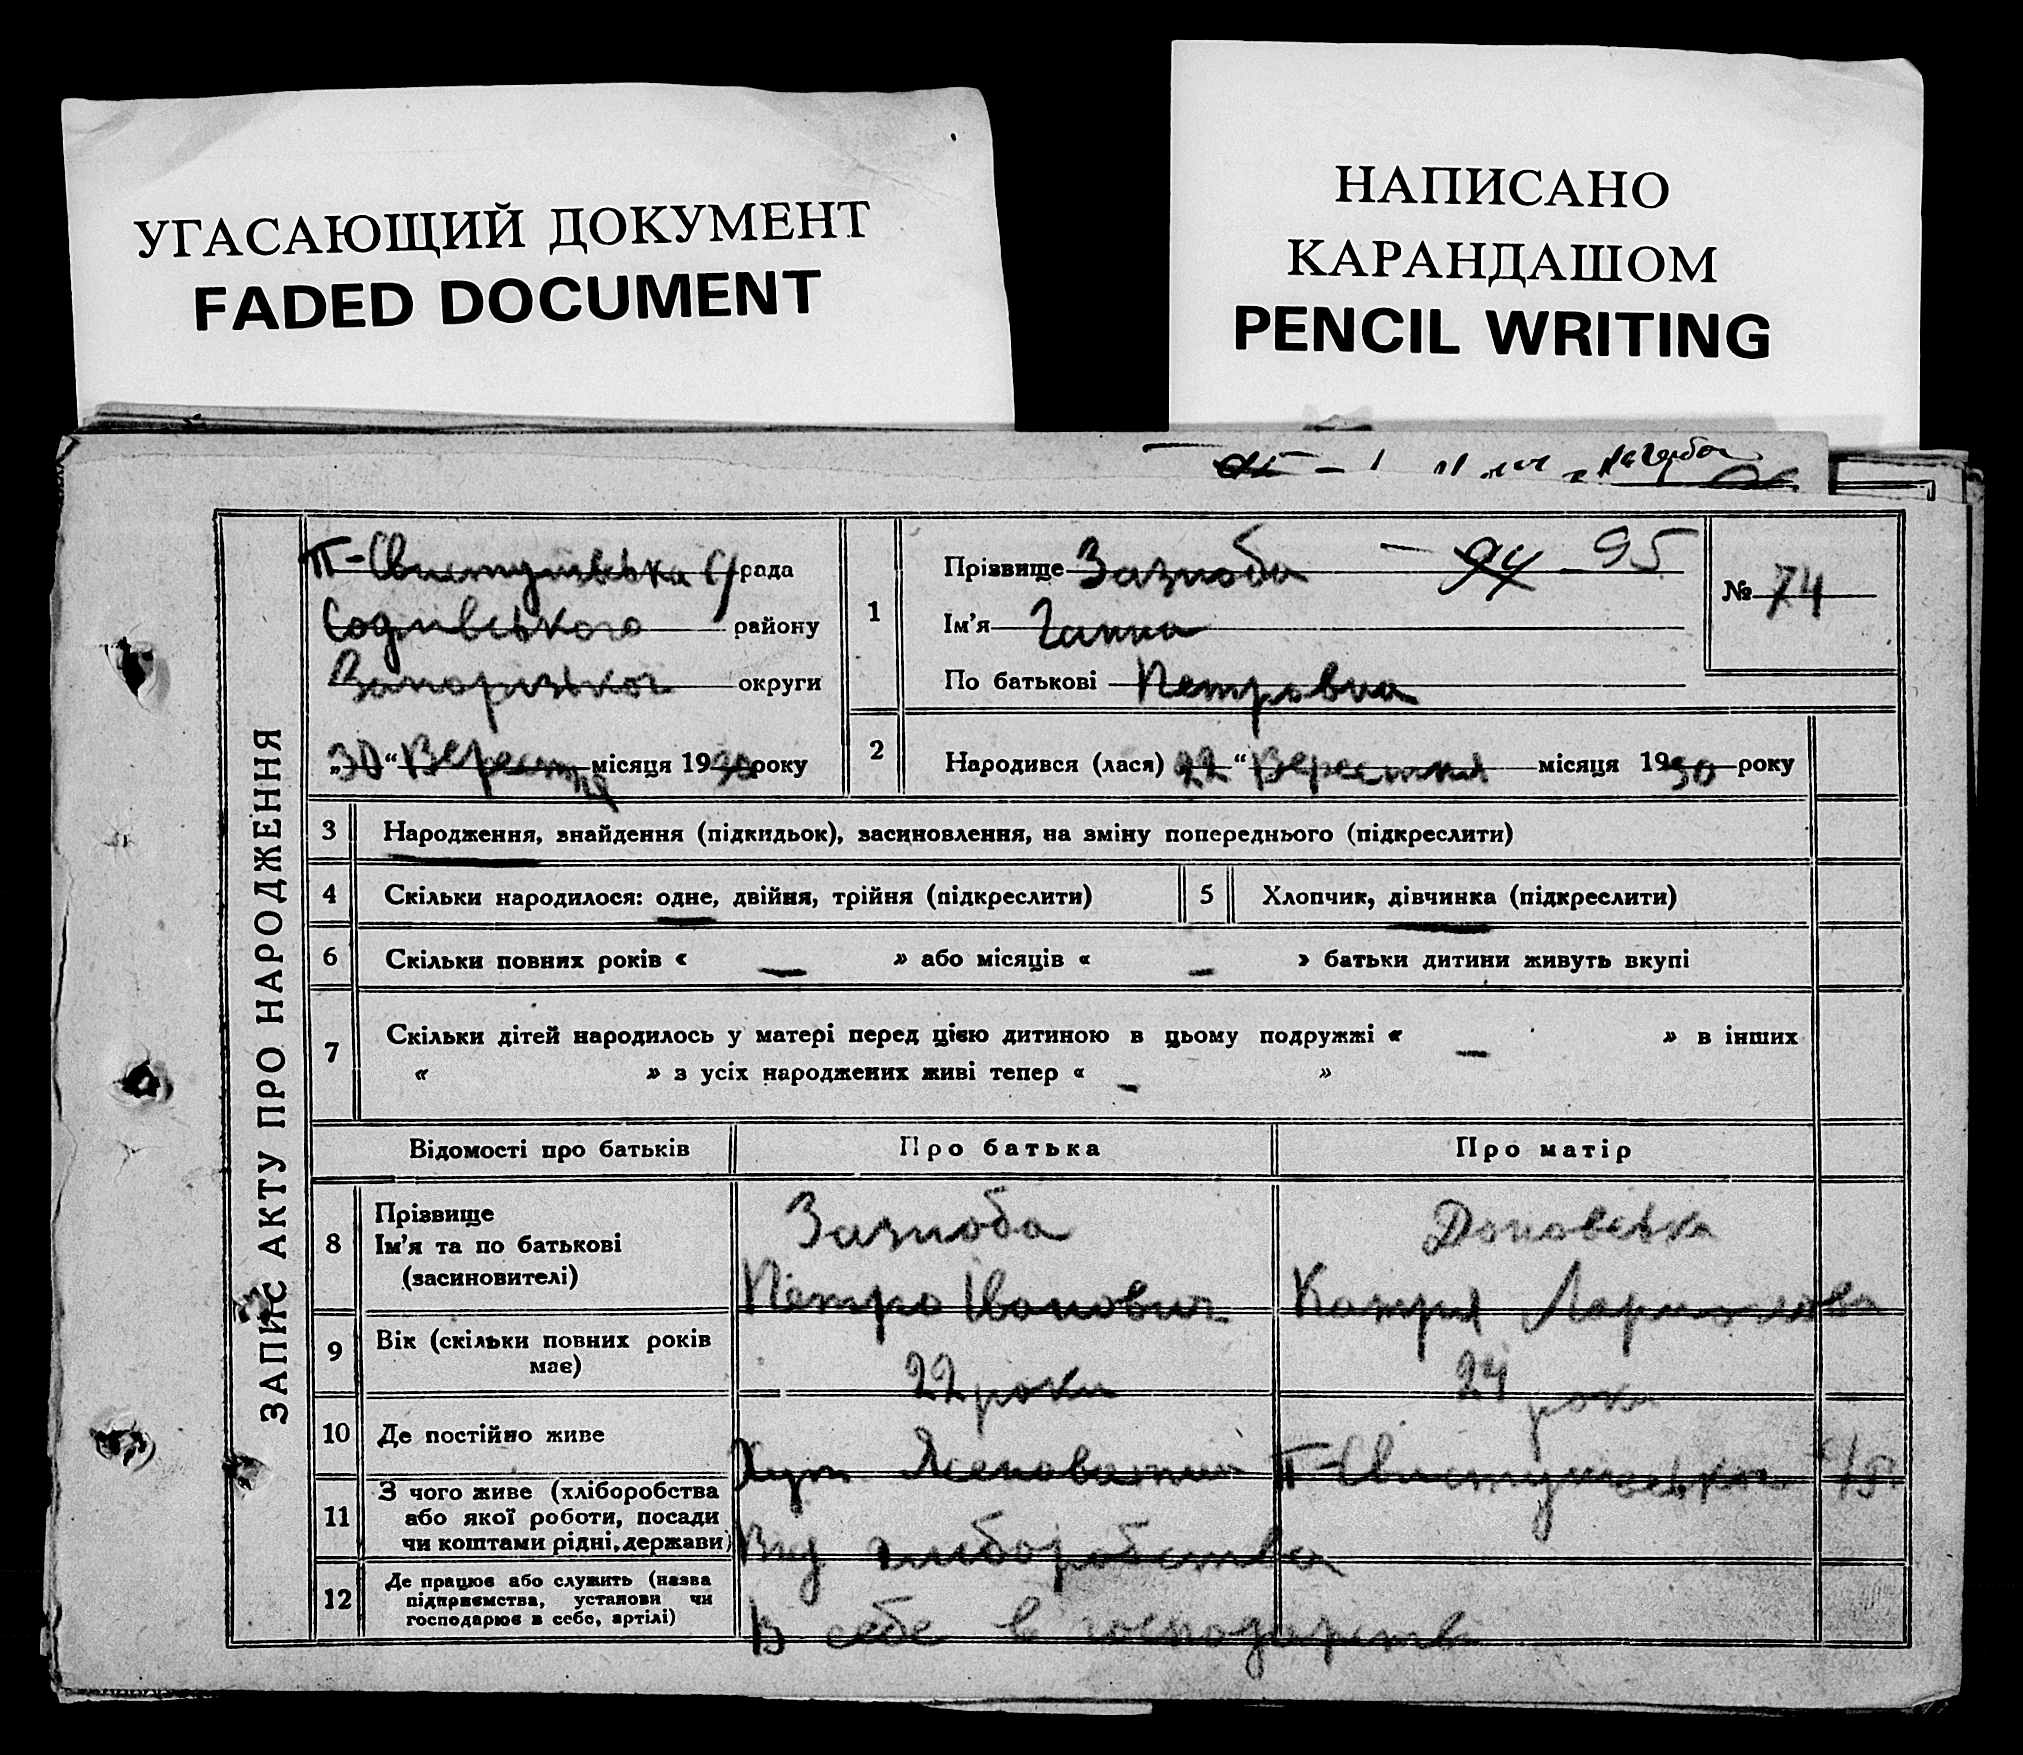 УГАСАЮЩИЙ ДОКУМЕНТ
FADED DOCUMENT
НАПИСАНО
КАРАНДАШОМ
PENCIL WRITING
ЗАПИС АКТУ ПРО НАРОДЖЕННЯ
П-Свистунівська с/рада
району
Запорізької округи
„30“ Вересня місяця 1930 року
1
Прізвище Зазноба — 94 — 95
Ім’я Ганна
По батькові Петровна
№ 74
2
Народився (лася) 22 “ Вересня місяця 1930 року
3 Народження, знайдення (підкидьок), засиновлення, на зміну попереднього (підкреслити)
4 Скільки народилося: одне, двійня, трійня (підкреслити)
5 Хлопчик, дівчинка (підкреслити)
6 Скільки повних років « — » або місяців « — » батьки дитини живуть вкупі
7 Скільки дітей народилось у матері перед цією дитиною в цьому подружжі « — » в інших
« » з усіх народжених живі тепер « — »
Відомості про батьків
Про батька
Про матір
8 Прізвище
Ім’я та по батькові
(засиновителі)
Зазноба
Петро Іванович
Катря
9 Вік (скільки повних років
має)
22 роки
24 роки
10 Де постійно живе
Хут. П-Свистунівської с/р
11 З чого живе (хліборобства
або якої роботи, посади
чи коштами рідні, держави)
Від хліборобства
12 Де працює або служить (назва
підприємства, установи чи
господарює в себе, артілі)
В себе в господарстві